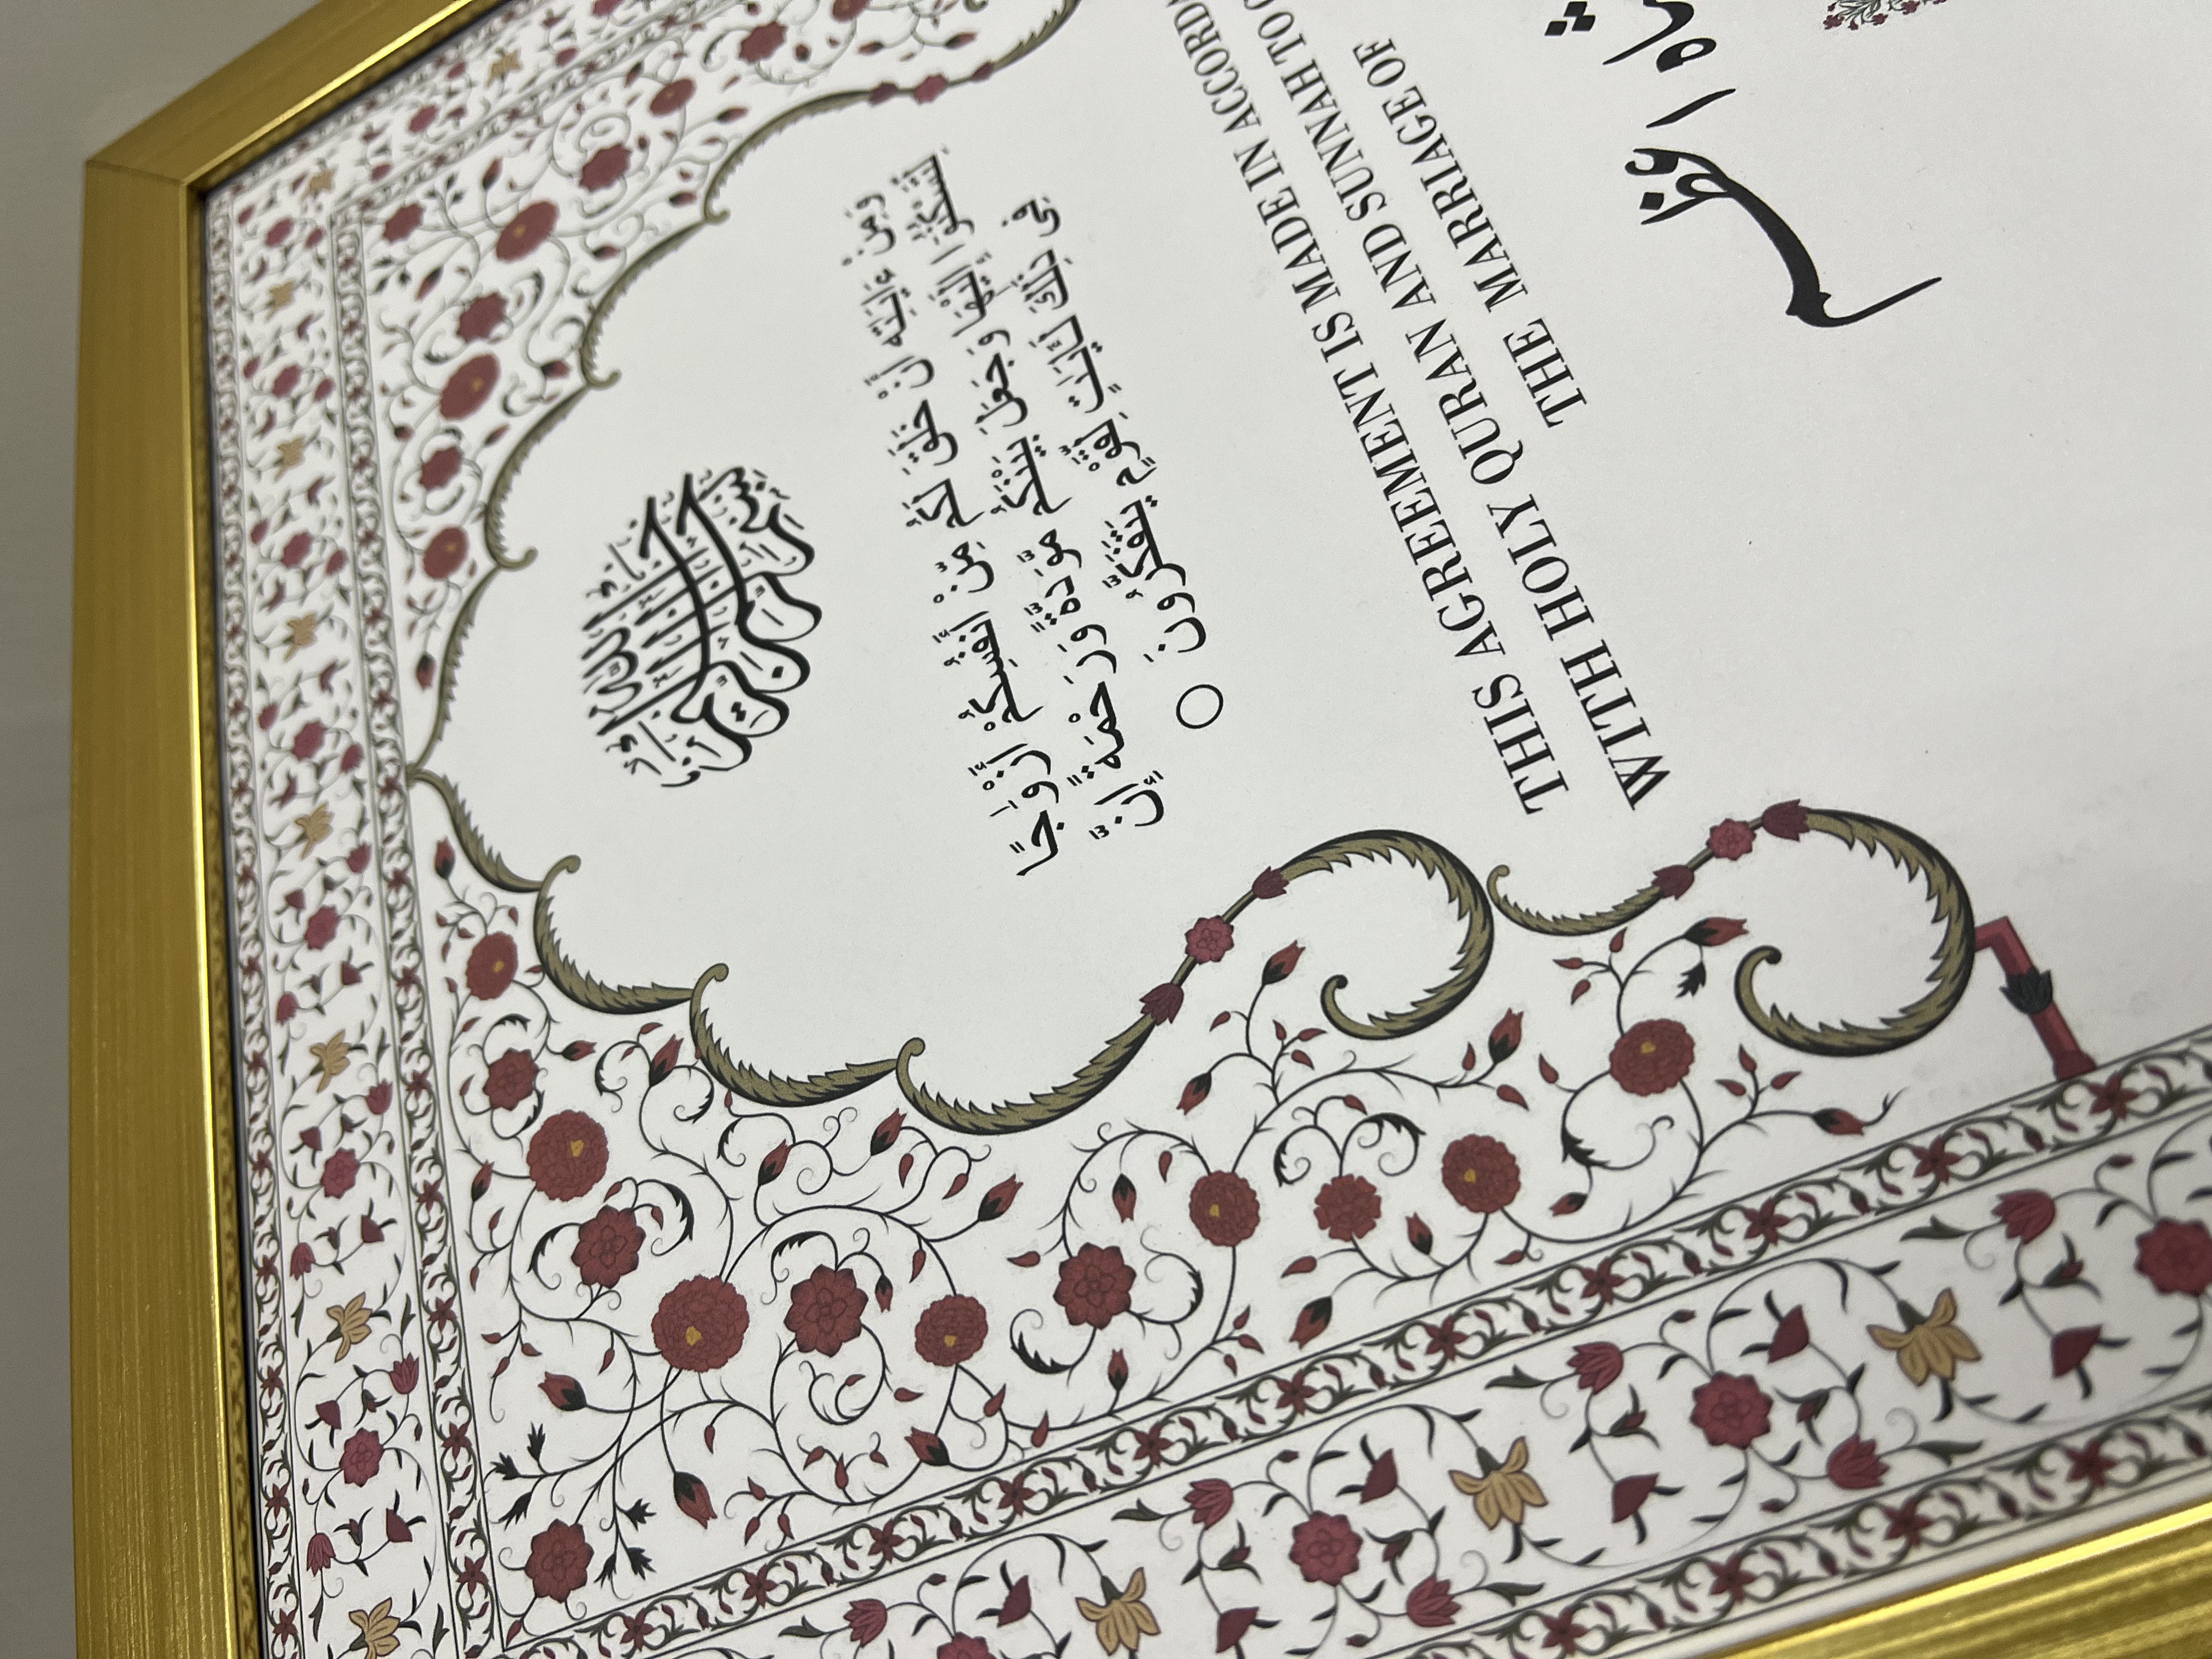 بسم الله الرحمن الرحيم
وَمِنْ ءَايَٰتِهِۦٓ أَنْ خَلَقَ لَكُم مِّنْ أَنفُسِكُمْ أَزْوَٰجًا
لِّتَسْكُنُوٓا۟ إِلَيْهَا وَجَعَلَ بَيْنَكُم مَّوَدَّةً وَرَحْمَةً إِنَّ
فِى ذَٰلِكَ لَءَايَٰتٍ لِّقَوْمٍ يَتَفَكَّرُونَ ○
THIS AGREEMENT IS MADE IN
WITH HOLY QURAN AND SUNNAH TO
THE MARRIAGE OF